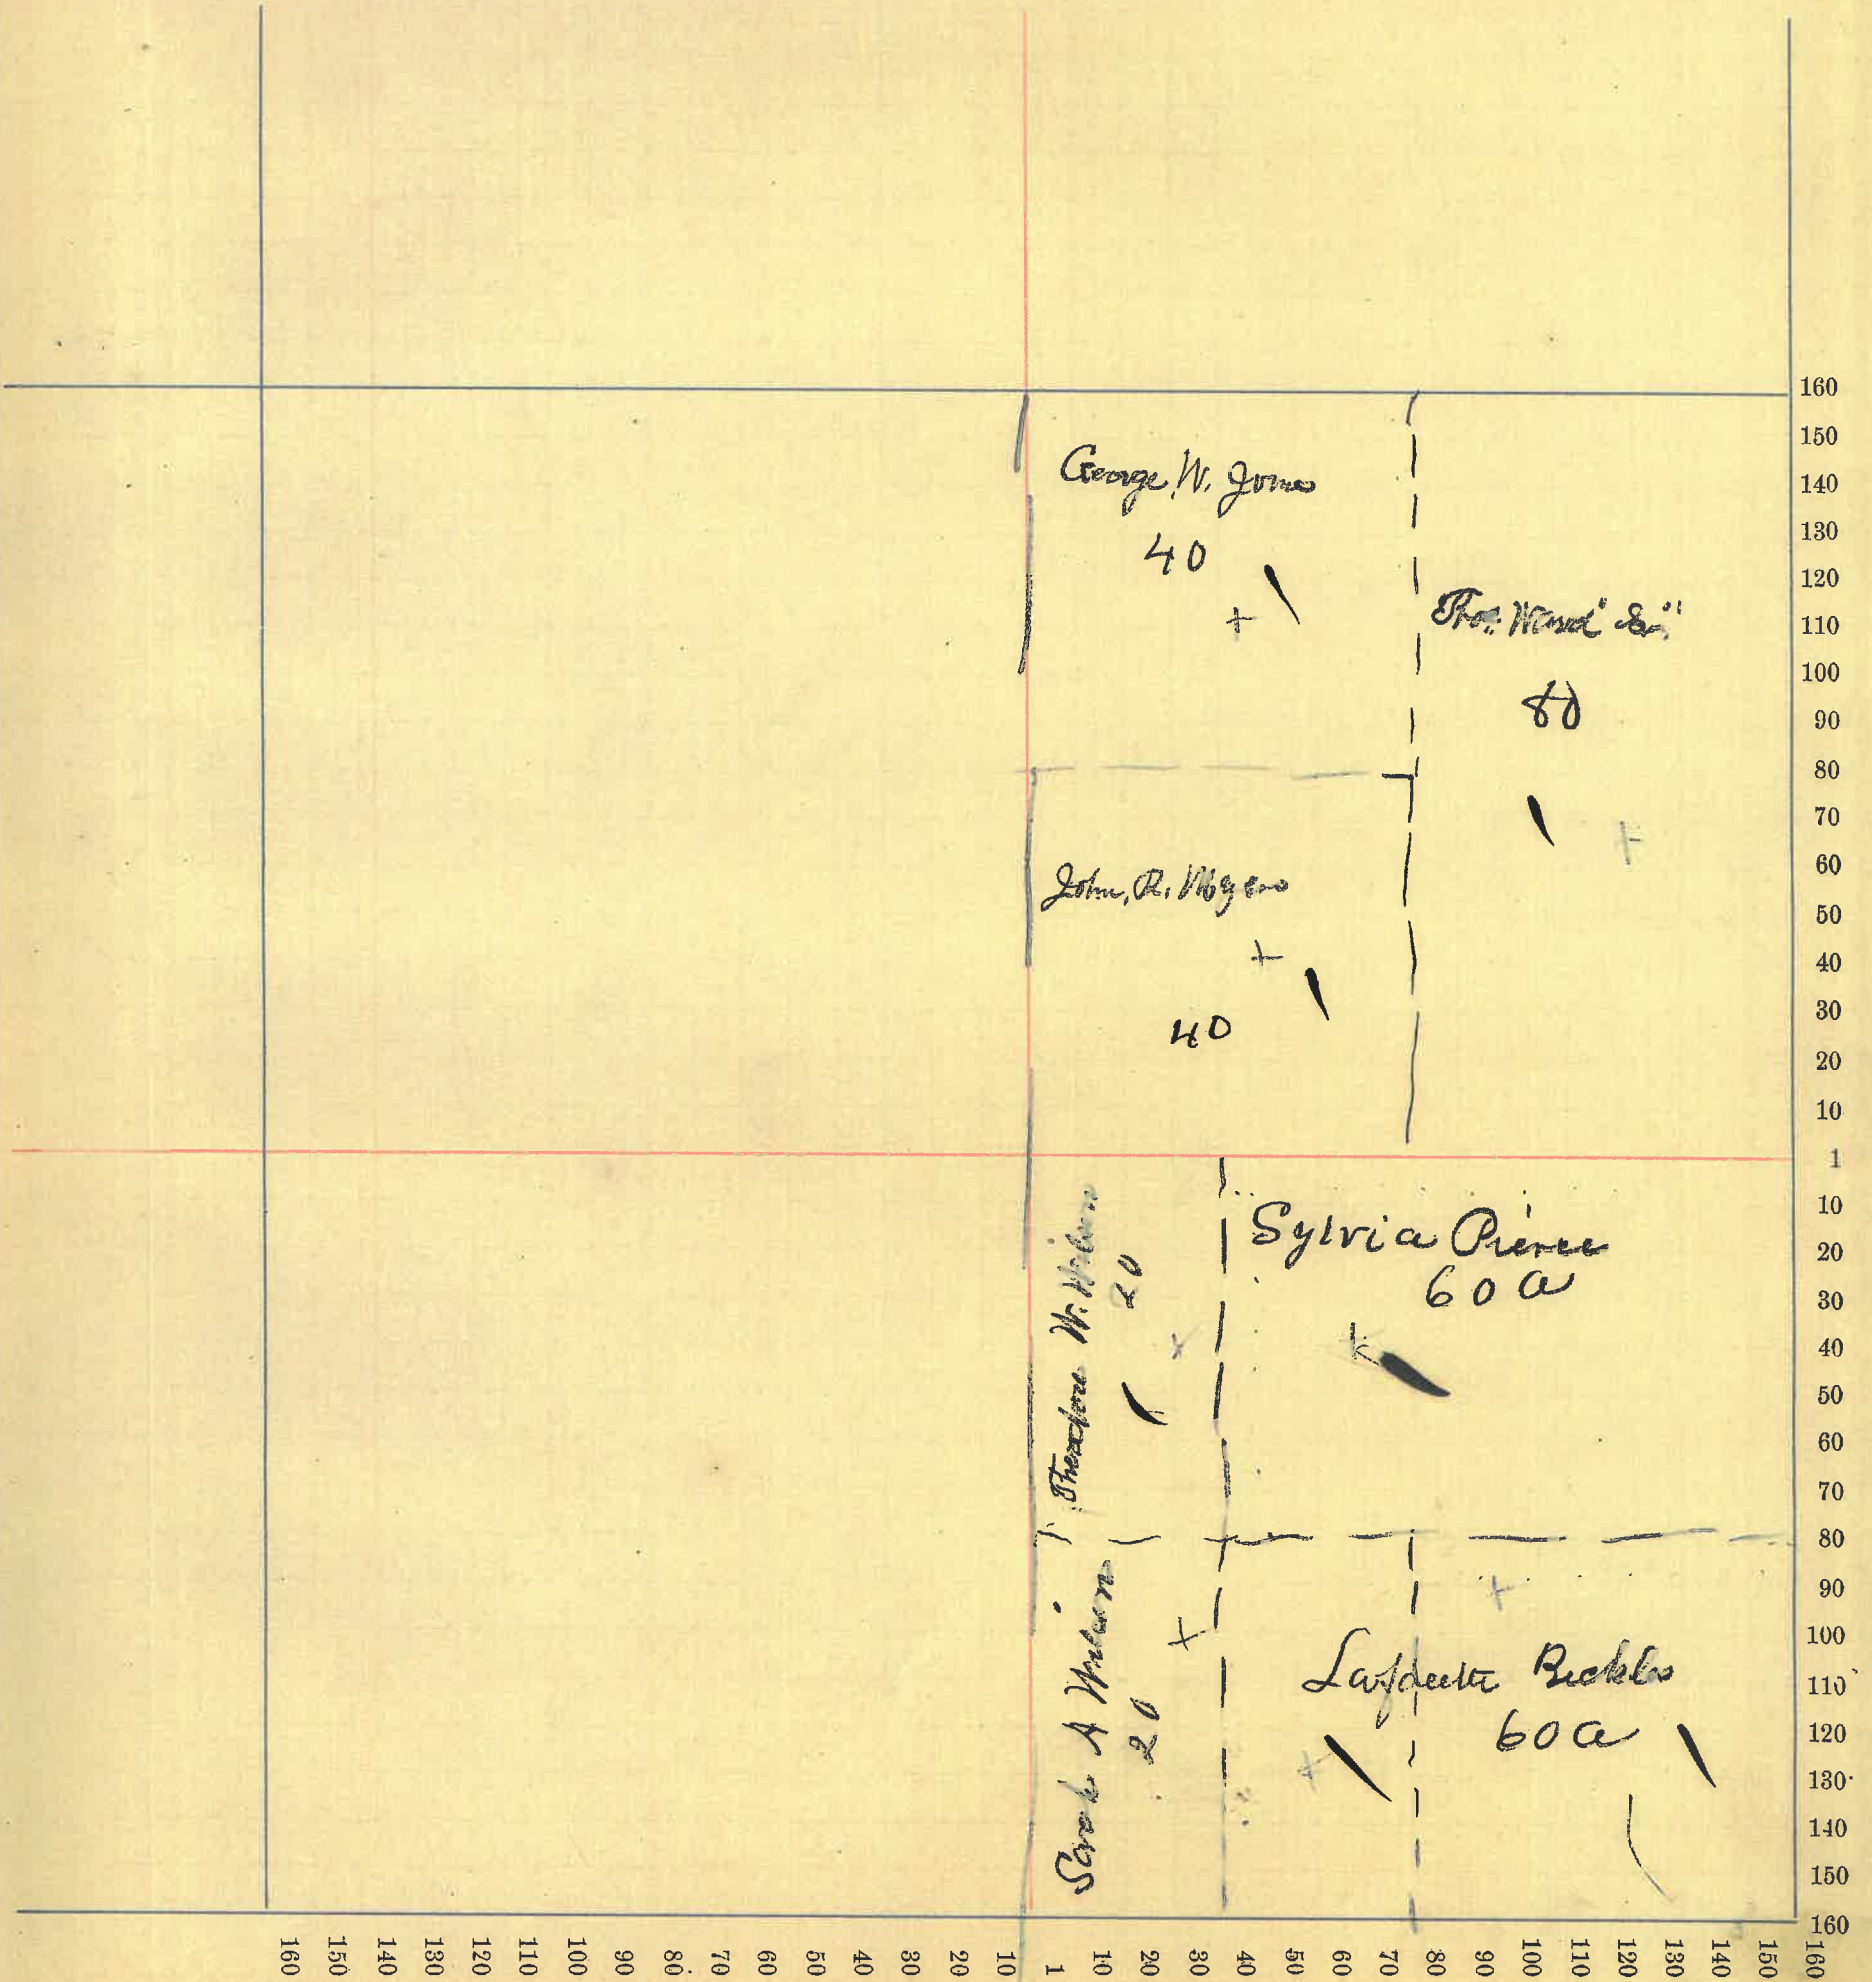 George, W. Jones
40
Thos. Ward "Sr."
80
John, R. Moyers
40
Theodore W. Wilson
20
Sylvia Pierce
60 a
Sarah A Wilson
20
Lafaette
60 a
160
150
140
130
120
110
100
90
80
70
60
50
40
30
20
10
1
10
20
30
40
50
60
70
80
90
100
110
120
130
140
150
160
160 150 140 130 120 110 100 90 80 70 60 50 40 30 20 10 1 10 20 30 40 50 60 70 80 90 100 110 120 130 140 150 160